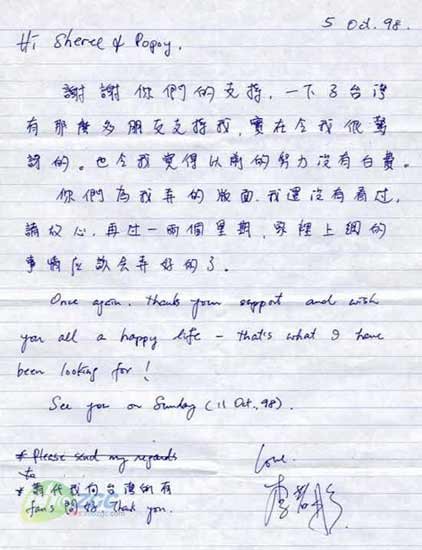 5 Oct. 98.
Hi Sheree & Popoy,
謝謝你們的支持，一下了台灣
有那麼多朋友支持我，實在令我很驚
訝的。也令我覺得以前的努力沒有白費。
你們為我弄的版面，我還沒有看过，
請放心，再过一兩個星期，家裡上網的
事情应該会弄好的了。
Once again, thanks your support and wish
you all a happy life - that's what I have
been looking for!
See you on Sunday (11 Oct., 98).
* Please send my regards
to
* 請代我向台灣的有
fan's 問好 Thank you.
Love,
李若彤